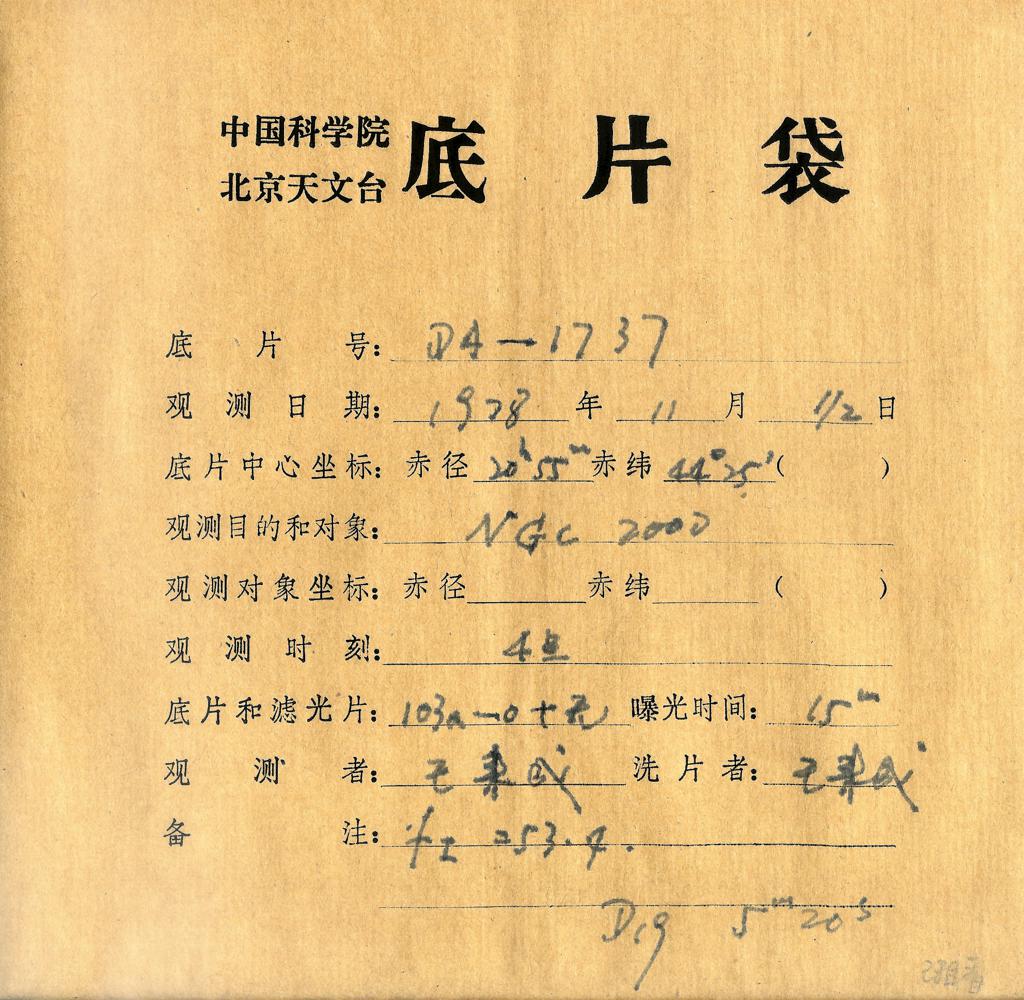 中国科学院
北京天文台 底片袋
底片号: DA-1737
观测日期: 1978 年 11 月 1/2 日
底片中心坐标: 赤径 20h55m 赤纬 44°25' ( )
观测目的和对象: NGC 2000
观测对象坐标: 赤径 赤纬 ( )
观测时刻: 4
底片和滤光片: 103a-0+无 曝光时间: 15m
观测者: 王 洗片者: 王
备注: 253.4.
5m20s